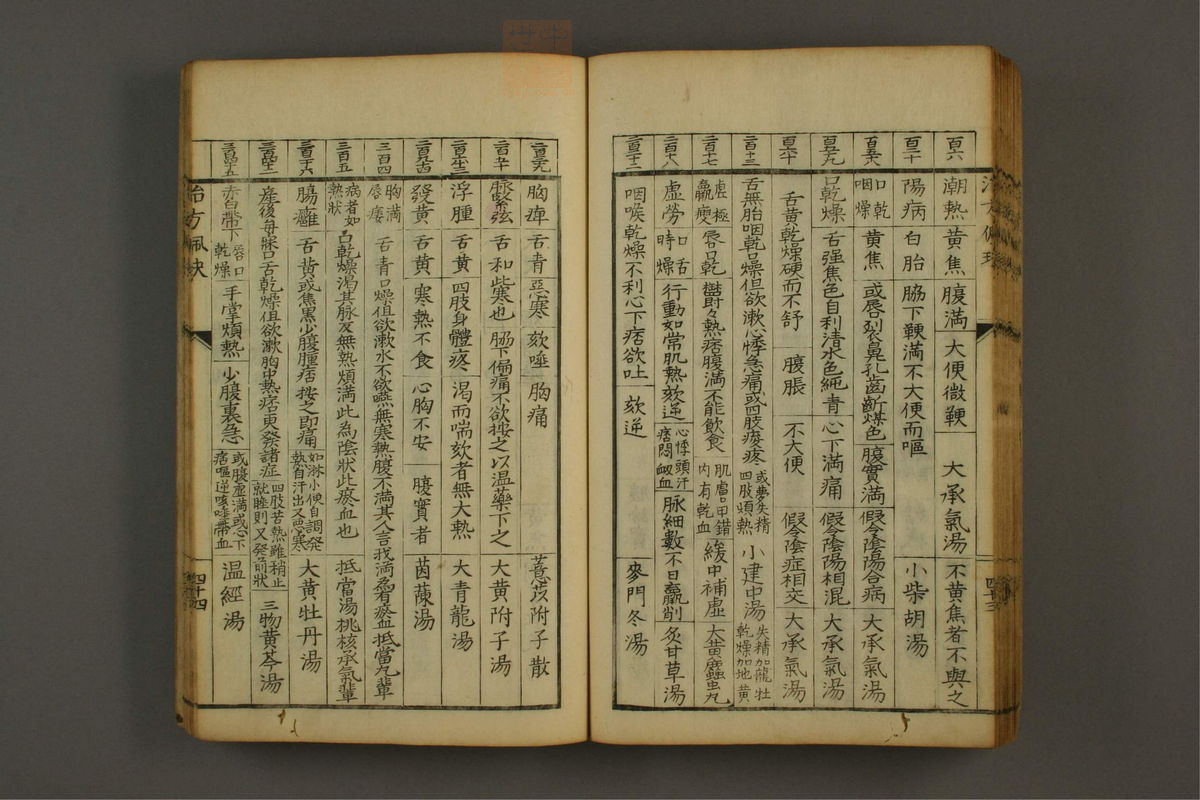 百六 潮熱 黄焦 腹満 大便微鞕 大承氣湯 不黄焦者不與之
陽病 白胎 脇下鞕満不大便而嘔 小柴胡湯
口乾咽燥 黄焦 或唇裂鼻孔齒齗煤色 腹實満 假令陰陽合病 大承氣湯
口乾燥 舌强焦色自利清水色純青 心下満痛 假令陰陽相混 大承氣湯
舌黄乾燥硬而不舒 腹脹 不大便 假令陰症相交 大承氣湯
舌無胎咽乾口燥但欲漱 心悸急痛或四肢痠疼 或夢失精四肢煩熱 小建中湯 失精加龍牡乾燥加地黄
虚極羸瘦 唇口乾 欝々熱痞腹満不能飲食 肌膚甲錯内有乾血 緩中補虚 大黄䗪虫丸
虚勞 口舌時燥 行動如常肌熱欬逆 心悸頭汗痞悶衂血 脉細數 不日羸削 炙甘草湯
咽喉乾燥不利心下痞欲吐 欬逆 麥門冬湯
四十三
胸痺 舌青 惡寒 欬唾 胸痛 薏苡附子散
脉緊弦 舌和此寒也 脇下偏痛不欲按之以温藥下之 大黄附子湯
浮腫 舌黄 四肢身體疼 渴而喘欬者無大熱 大青龍湯
發黄 舌黄 寒熱不食 心胸不安 腹實者 茵蔯湯
三百四 胸満唇痿 舌青口燥但欲漱水不欲嚥無寒熱腹不満其人言我満為有瘀血 抵當丸輩
三百五 病者如熱狀 口乾燥渴其脉反無熱煩満此為陰狀此瘀血也 抵當湯桃核承氣輩
腸癰 舌黄或焦黒少腹腫痞按之即痛 如淋小便自調發熱自汗出又惡寒 大黄牡丹湯
産後每寐口舌乾燥但欲漱胸中熱痞更發諸症 四肢苦熱雖稍止就睡則又發前狀 三物黄芩湯
赤白帶下 唇口乾燥 手掌煩熱 少腹裏急 或腹虚満或心下痞嘔逆咳唾帶血 温經湯
四十四